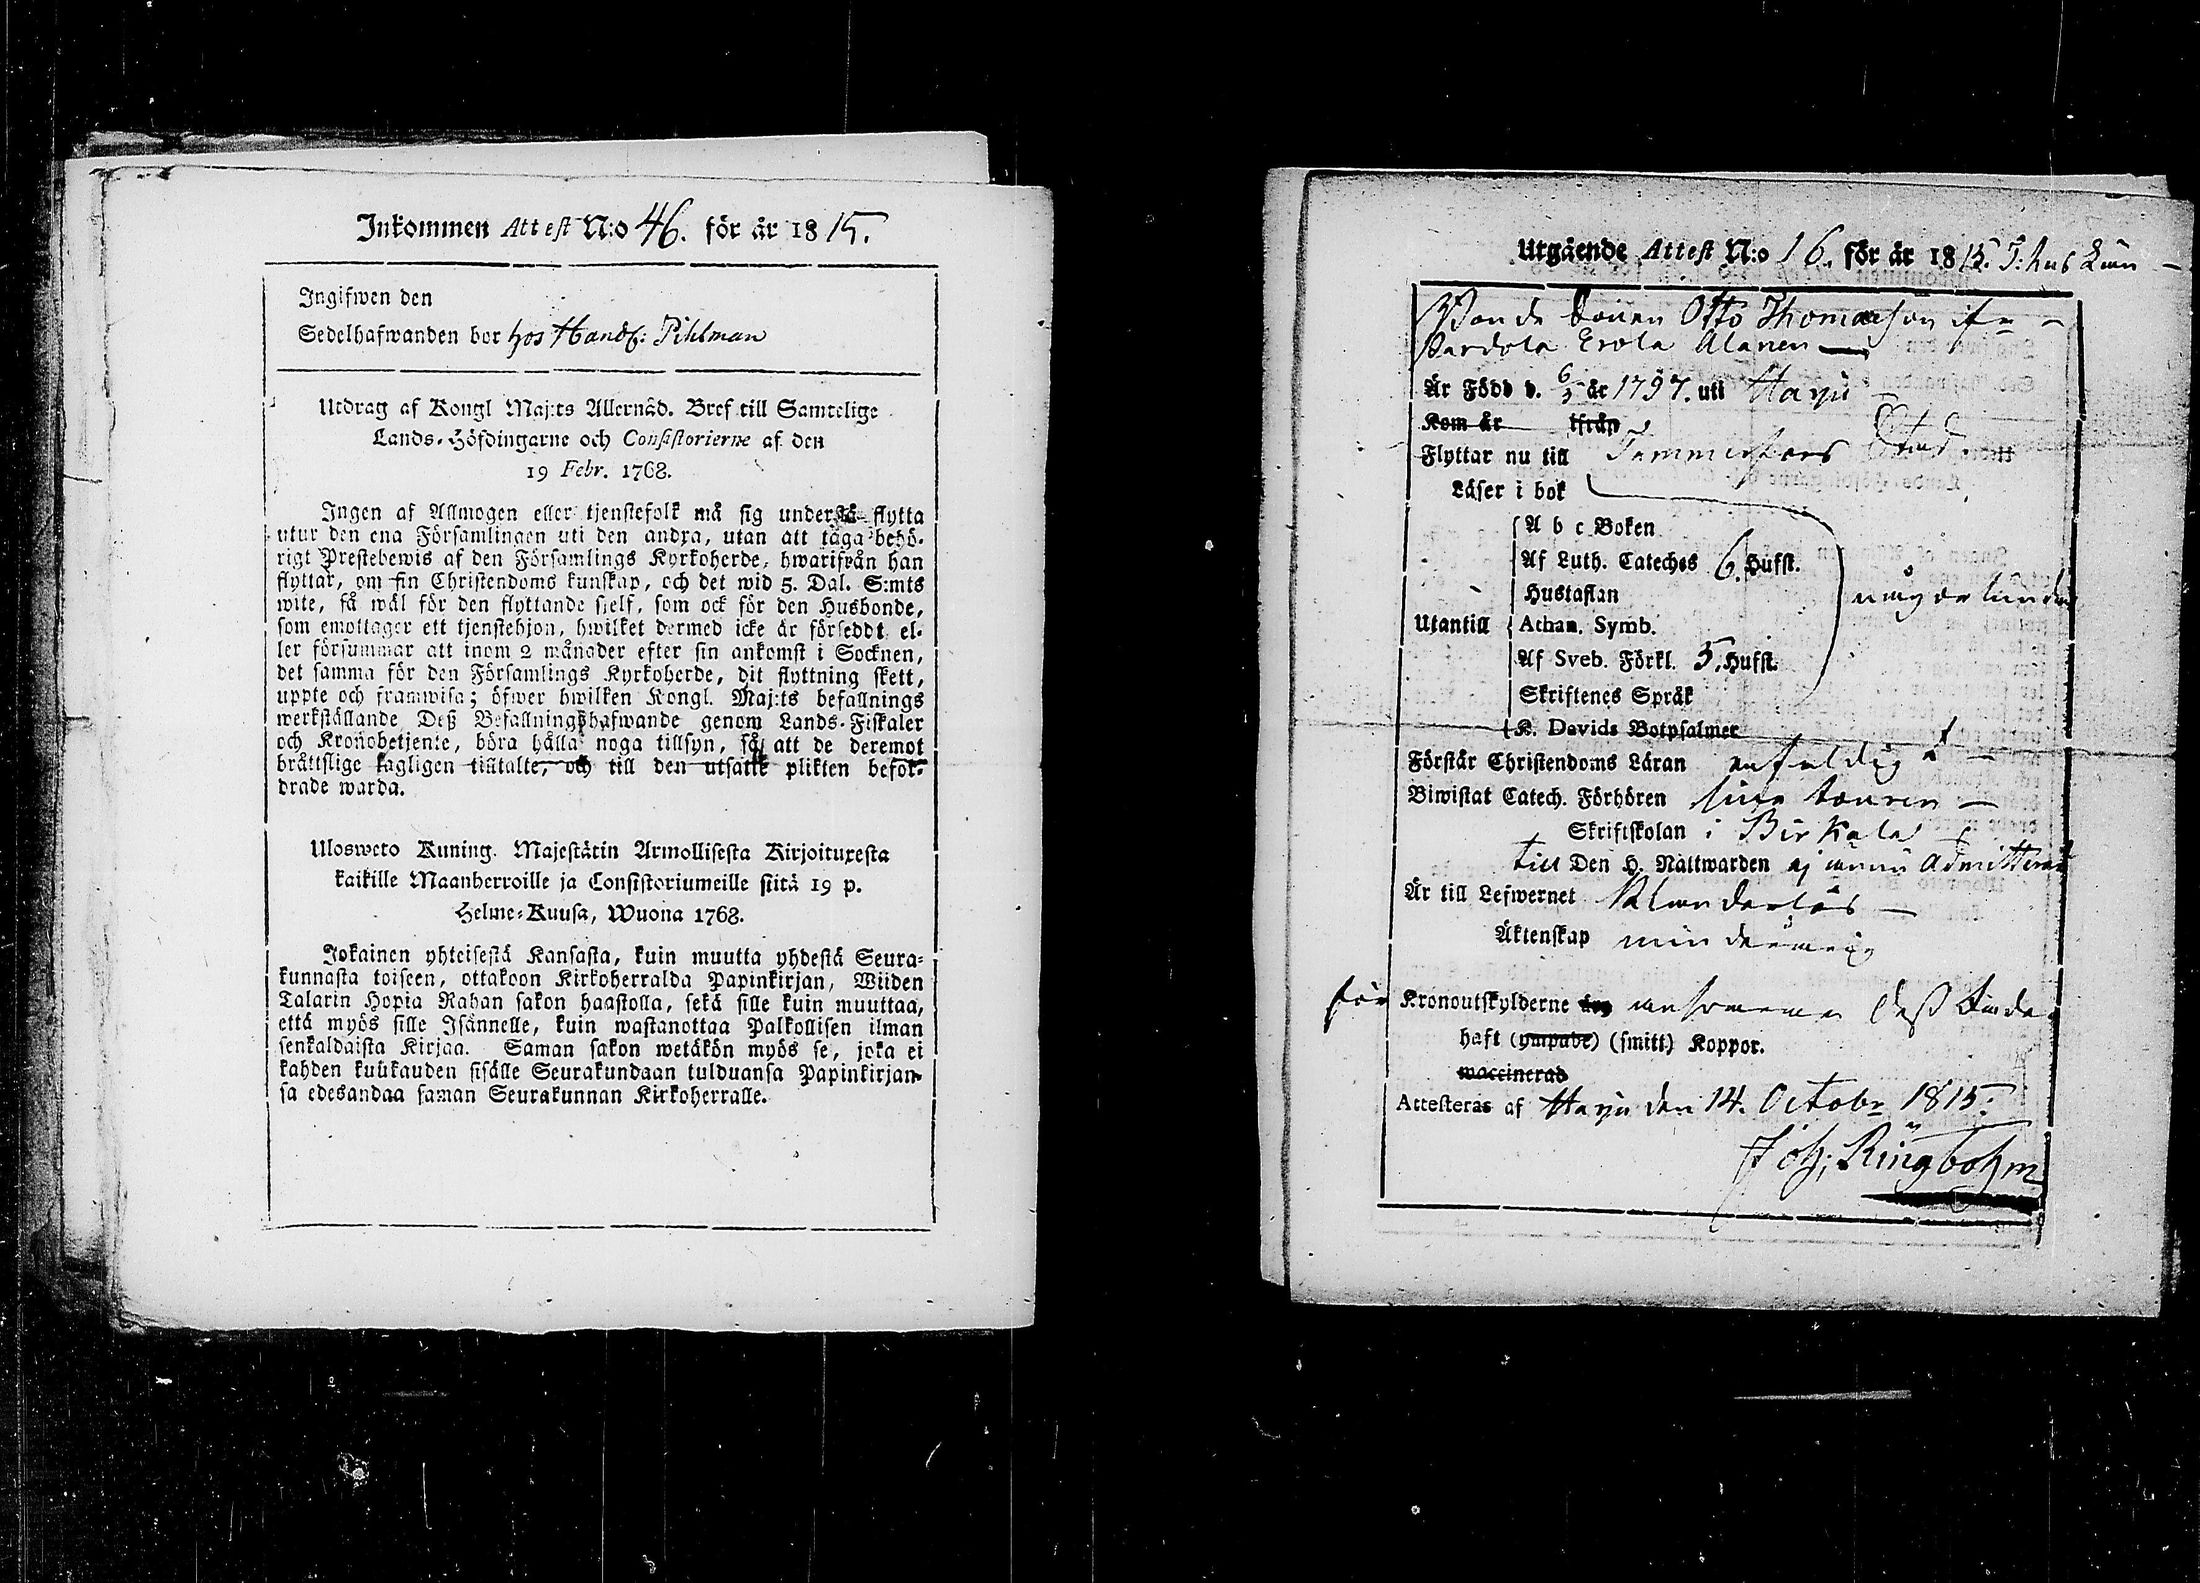 Inkommen Attest N:o 46. för år 1815.
Ingifwen den
Sedelhafwanden bor hos Handl: Pihlman
Utdrag af Kongl Maj:ts Allernåd. Bref till Samtelige
Lands-Höfdingarne och Consistorierne af den
19 Febr. 1768.
Ingen af Allmogen eller tjenstefolk må sig understå flytta
utur den ena Församlingen uti den andra, utan att taga behö-
rigt Prestebewis af den Församlings Kyrkoherde, hwarifrån han
flyttar, om sin Christendoms kunskap, och det wid 5. Dal. S:mts
wite, så wäl för den flyttande sjelf, som ock för den Husbonde,
som emottager ett tjenstehjon, hwilket dermed icke är förseddt el-
ler försummar att inom 2 månader efter sin ankomst i Socknen,
det samma för den Församlings Kyrkoherde, dit flyttning skett,
uppte och framwisa; öfwer hwilken Kongl. Maj:ts befallnings
werkställande Deß Befallningshafwande genom Lands-Fiskaler
och Kronobetjente, böra hålla noga tillsyn, så att de deremot
bråttslige lagligen tilltalte, och till den utsatte plikten befor-
drade warda.
Ulosweto Kuning. Majestätin Armollisesta Kirjoituxesta
kaikille Maanherroille ja Consistoriumeille siitä 19 p.
Helme-Kuusa, Wuona 1768.
Jokainen yhteisestä Kansasta, kuin muutta yhdestä Seura-
kunnasta toiseen, ottakoon Kirkoherralda Papinkirjan, Wiiden
Talarin Hopia Rahan sakon haastolla, sekä sille kuin muuttaa,
että myös sille Isännelle, kuin wastanottaa Palkollisen ilman
senkaldaista Kirjaa. Saman sakon wetäkön myös se, joka ei
kahden kuükauden sisälle Seurakundaan tulduansa Papinkirjan-
sa edesandaa saman Seurakunnan Kirkoherralle.
Utgående Attest N:o 16. för år 1815. T:hus Län
Bonde Sonen Otto Thomasson ifr
Pardola Erola Alanen
Är Född d. 6/3 år 1797. uti Harju
Kom år ifrån
Flyttar nu till Tammerfors Stad.
Läser i bok
A b c Boken
Af Luth. Cateches 6. Hufst.
Hustaflan någorlunda
Utantill Athan. Symb.
Af Sveb. Förkl. 5. Hufst.
Skriftenes Språk
K. Davids Botpsalmer
Förstår Christendoms Läran enfeldigt
Biwistat Catech. Förhören sine
Skriftskolan i Birkala
till Den H. Nattwarden ej ännu Admitterad
Är till Lefwernet klanderlös
Äktenskap minderårig
för Kronoutskylderne deß
haft (ympade) (smitt.) Koppor.
waccinerad
Attesteras af Harju den 14. Octobr 1815.
Joh; Ringbohm